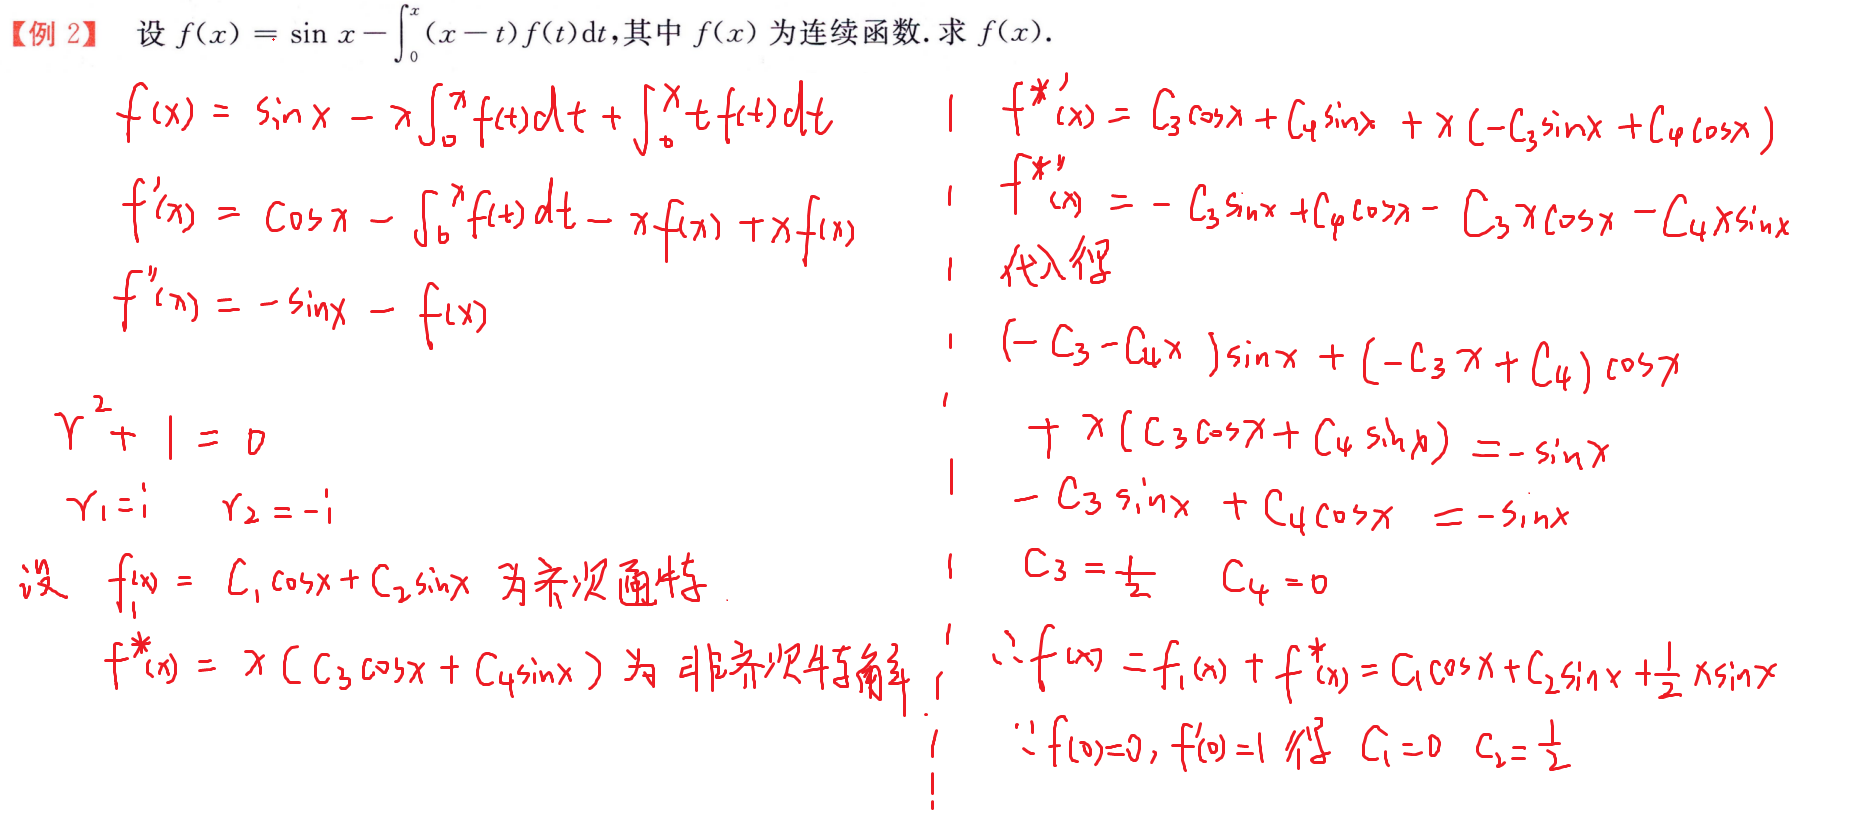 【例 2】 设 f(x) = sin x − ∫₀ˣ (x − t) f(t)dt,其中 f(x) 为连续函数. 求 f(x).
f(x) = sinx − x∫₀ˣ f(t)dt + ∫₀ˣ t f(t)dt
f'(x) = cosx − ∫₀ˣ f(t)dt − xf(x) + xf(x)
f''(x) = −sinx − f(x)
r² + 1 = 0
r₁ = i r₂ = −i
设 f₁(x) = C₁cosx + C₂sinx 为齐次通特
f*(x) = x(C₃cosx + C₄sinx) 为非齐次特解.
f*'(x) = C₃cosx + C₄sinx + x(−C₃sinx + C₄cosx)
f*''(x) = −C₃sinx + C₄cosx − C₃xcosx − C₄xsinx
代入得
(−C₃ − C₄x)sinx + (−C₃x + C₄)cosx
+ x(C₃cosx + C₄sinx) = −sinx
−C₃sinx + C₄cosx = −sinx
C₃ = 1/2 C₄ = 0
∴ f(x) = f₁(x) + f*(x) = C₁cosx + C₂sinx + 1/2 xsinx
∵ f(0)=0, f'(0)=1 得 C₁=0 C₂=1/2